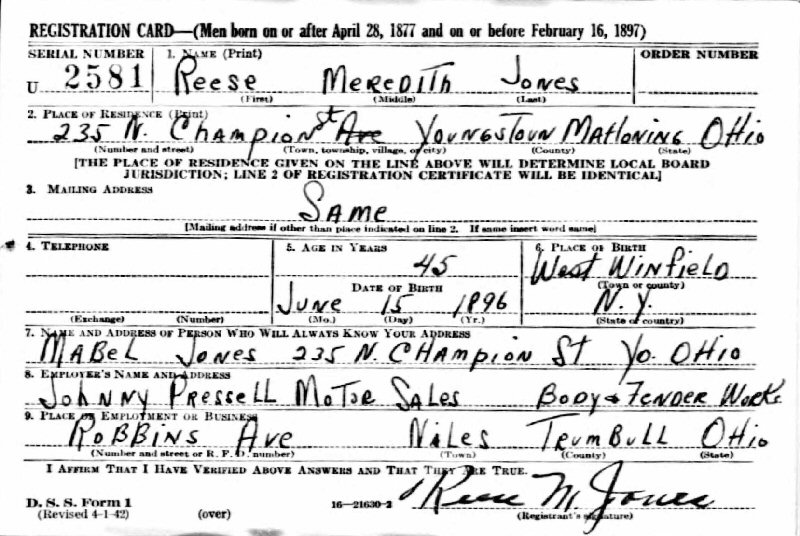 REGISTRATION CARD—(Men born on or after April 28, 1877 and on or before February 16, 1897)
SERIAL NUMBER 1. NAME (Print) ORDER NUMBER
U 2581 REESE MEREDITH JONES
(First) (Middle) (Last)
2. PLACE OF RESIDENCE (Print)
235 N. CHAMPION ST AVE YOUNGSTOWN MAHONING OHIO
(Number and street) (Town, township, village, or city) (County) (State)
[THE PLACE OF RESIDENCE GIVEN ON THE LINE ABOVE WILL DETERMINE LOCAL BOARD
JURISDICTION; LINE 2 OF REGISTRATION CERTIFICATE WILL BE IDENTICAL]
3. MAILING ADDRESS
SAME
[Mailing address if other than place indicated on line 2. If same insert word same]
4. TELEPHONE 5. AGE IN YEARS 6. PLACE OF BIRTH
45 WEST WINFIELD
DATE OF BIRTH (Town or county)
JUNE 15 1896 N.Y.
(Exchange) (Number) (Mo.) (Day) (Yr.) (State or country)
7. NAME AND ADDRESS OF PERSON WHO WILL ALWAYS KNOW YOUR ADDRESS
MABEL JONES 235 N. CHAMPION ST YO. OHIO
8. EMPLOYER'S NAME AND ADDRESS
JOHNNY PRESSELL MOTOR SALES BODY & FENDER WORKS
9. PLACE OF EMPLOYMENT OR BUSINESS
ROBBINS AVE NILES TRUMBULL OHIO
(Number and street or R. F. D. number) (Town) (County) (State)
I AFFIRM THAT I HAVE VERIFIED ABOVE ANSWERS AND THAT THEY ARE TRUE.
Reese M. Jones
D. S. S. Form 1
(Revised 4-1-42) (over) 16—21630-2 (Registrant's signature)